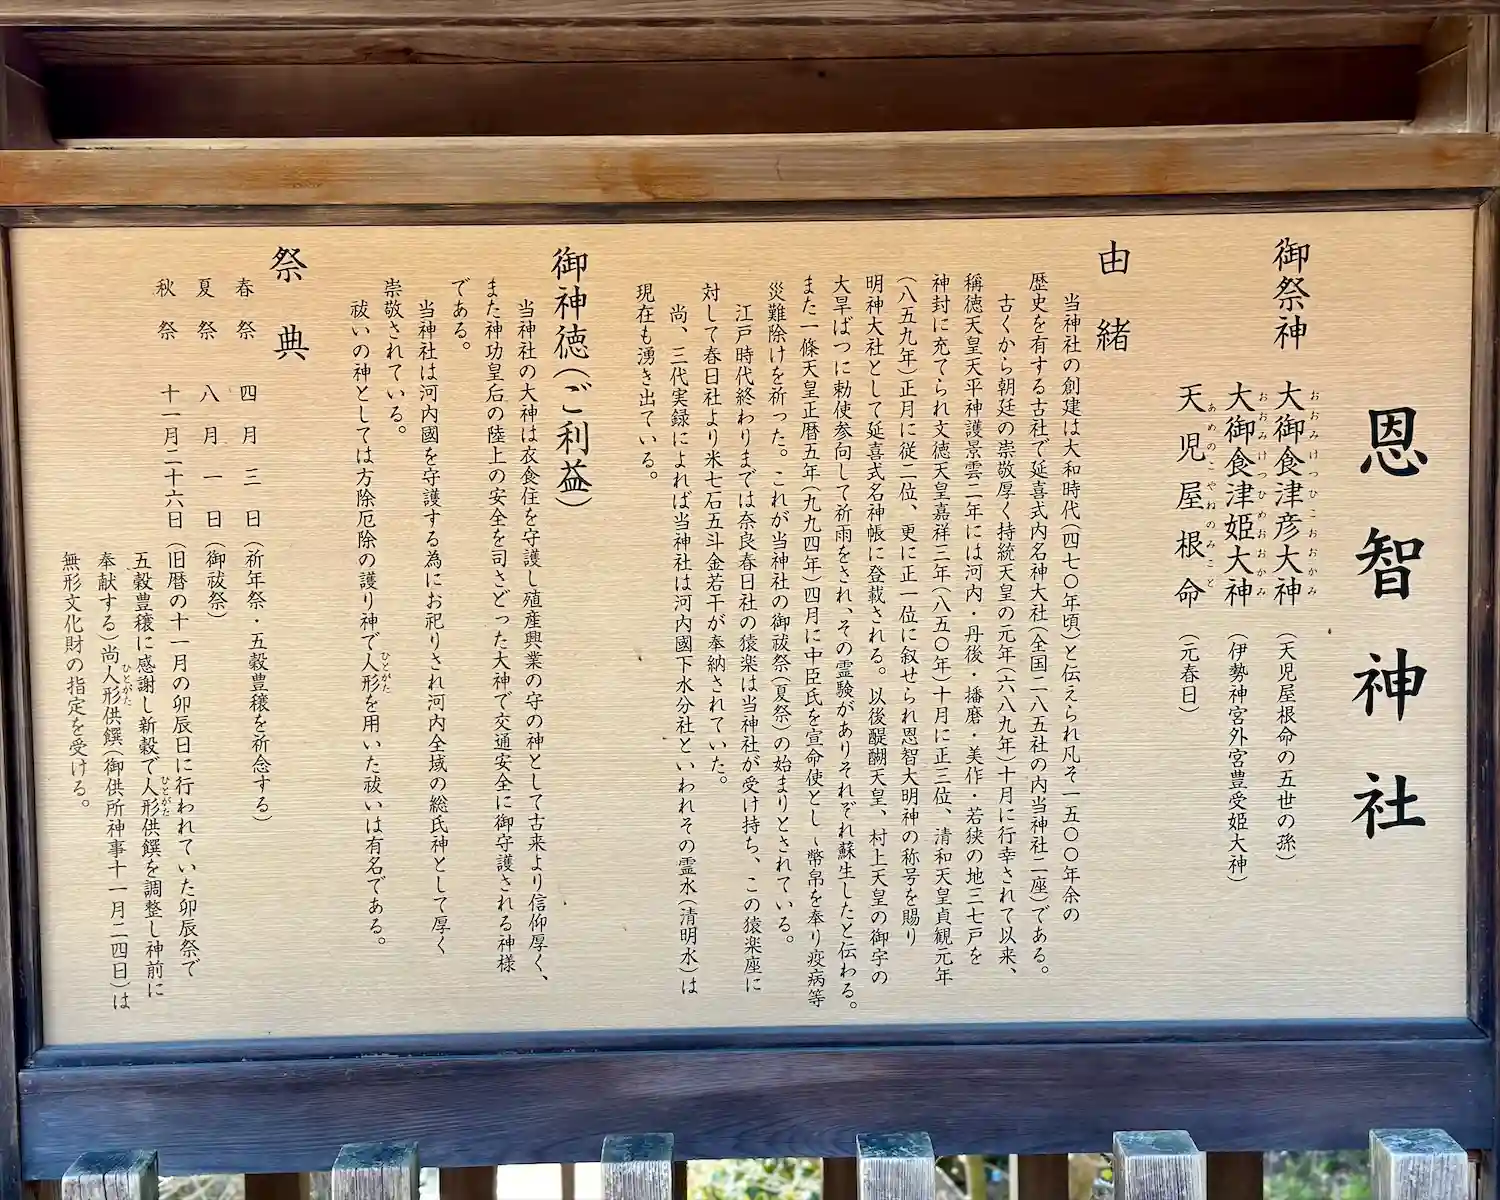 恩智神社
御祭神
大御食津彦大神（天児屋根命の五世の孫）
おおみけつひこおおかみ
大御食津姫大神（伊勢神宮外宮豊受姫大神）
おおみけつひめおおかみ
天児屋根命（元春日）
あめのこやねのみこと
由緒
当神社の創建は大和時代（四七〇年頃）と伝えられ凡そ一五〇〇年余の
歴史を有する古社で延喜式内名神大社（全国二八五社の内当神社二座）である。
古くから朝廷の崇敬厚く持統天皇の元年（六八九年）十月に行幸されて以来、
稱徳天皇天平神護景雲二年には河内・丹後・播磨・美作・若狭の地三七戸を
神封に充てられ文徳天皇嘉祥三年（八五〇年）十月に正三位、清和天皇貞観元年
（八五九年）正月に従二位、更に正一位に叙せられ恩智大明神の称号を賜り
明神大社として延喜式名神帳に登載される。以後醍醐天皇、村上天皇の御字の
大旱ばつに勅使参向して祈雨をされ、その霊験がありそれぞれ蘇生したと伝わる。
また一條天皇正暦五年（九九四年）四月に中臣氏を宣命使とし、幣帛を奉り疫病等
災難除けを祈った。これが当神社の御祓祭（夏祭）の始まりとされている。
江戸時代終わりまでは奈良春日社の猿楽は当神社が受け持ち、この猿楽座に
対して春日社より米七石五斗金若干が奉納されていた。
尚、三代実録によれば当神社は河内國下水分社といわれその霊水（清明水）は
現在も湧き出ている。
御神徳（ご利益）
当神社の大神は衣食住を守護し殖産興業の守の神として古来より信仰厚く、
また神功皇后の陸上の安全を司さどった大神で交通安全に御守護される神様
である。
当神社は河内國を守護する為にお祀りされ河内全域の総氏神として厚く
崇敬されている。
祓いの神としては方除厄除の護り神で人形を用いた祓いは有名である。
ひとがた
祭典
春祭　四月三日（祈年祭・五穀豊穣を祈念する）
夏祭　八月一日（御祓祭）
秋祭　十一月二十六日（旧暦の十一月の卯辰日に行われていた卯辰祭で
五穀豊穣に感謝し新穀で人形供饌を調整し神前に
ひとがた
奉献する）尚人形供饌（御供所神事十一月二四日）は
ひとがた
無形文化財の指定を受ける。